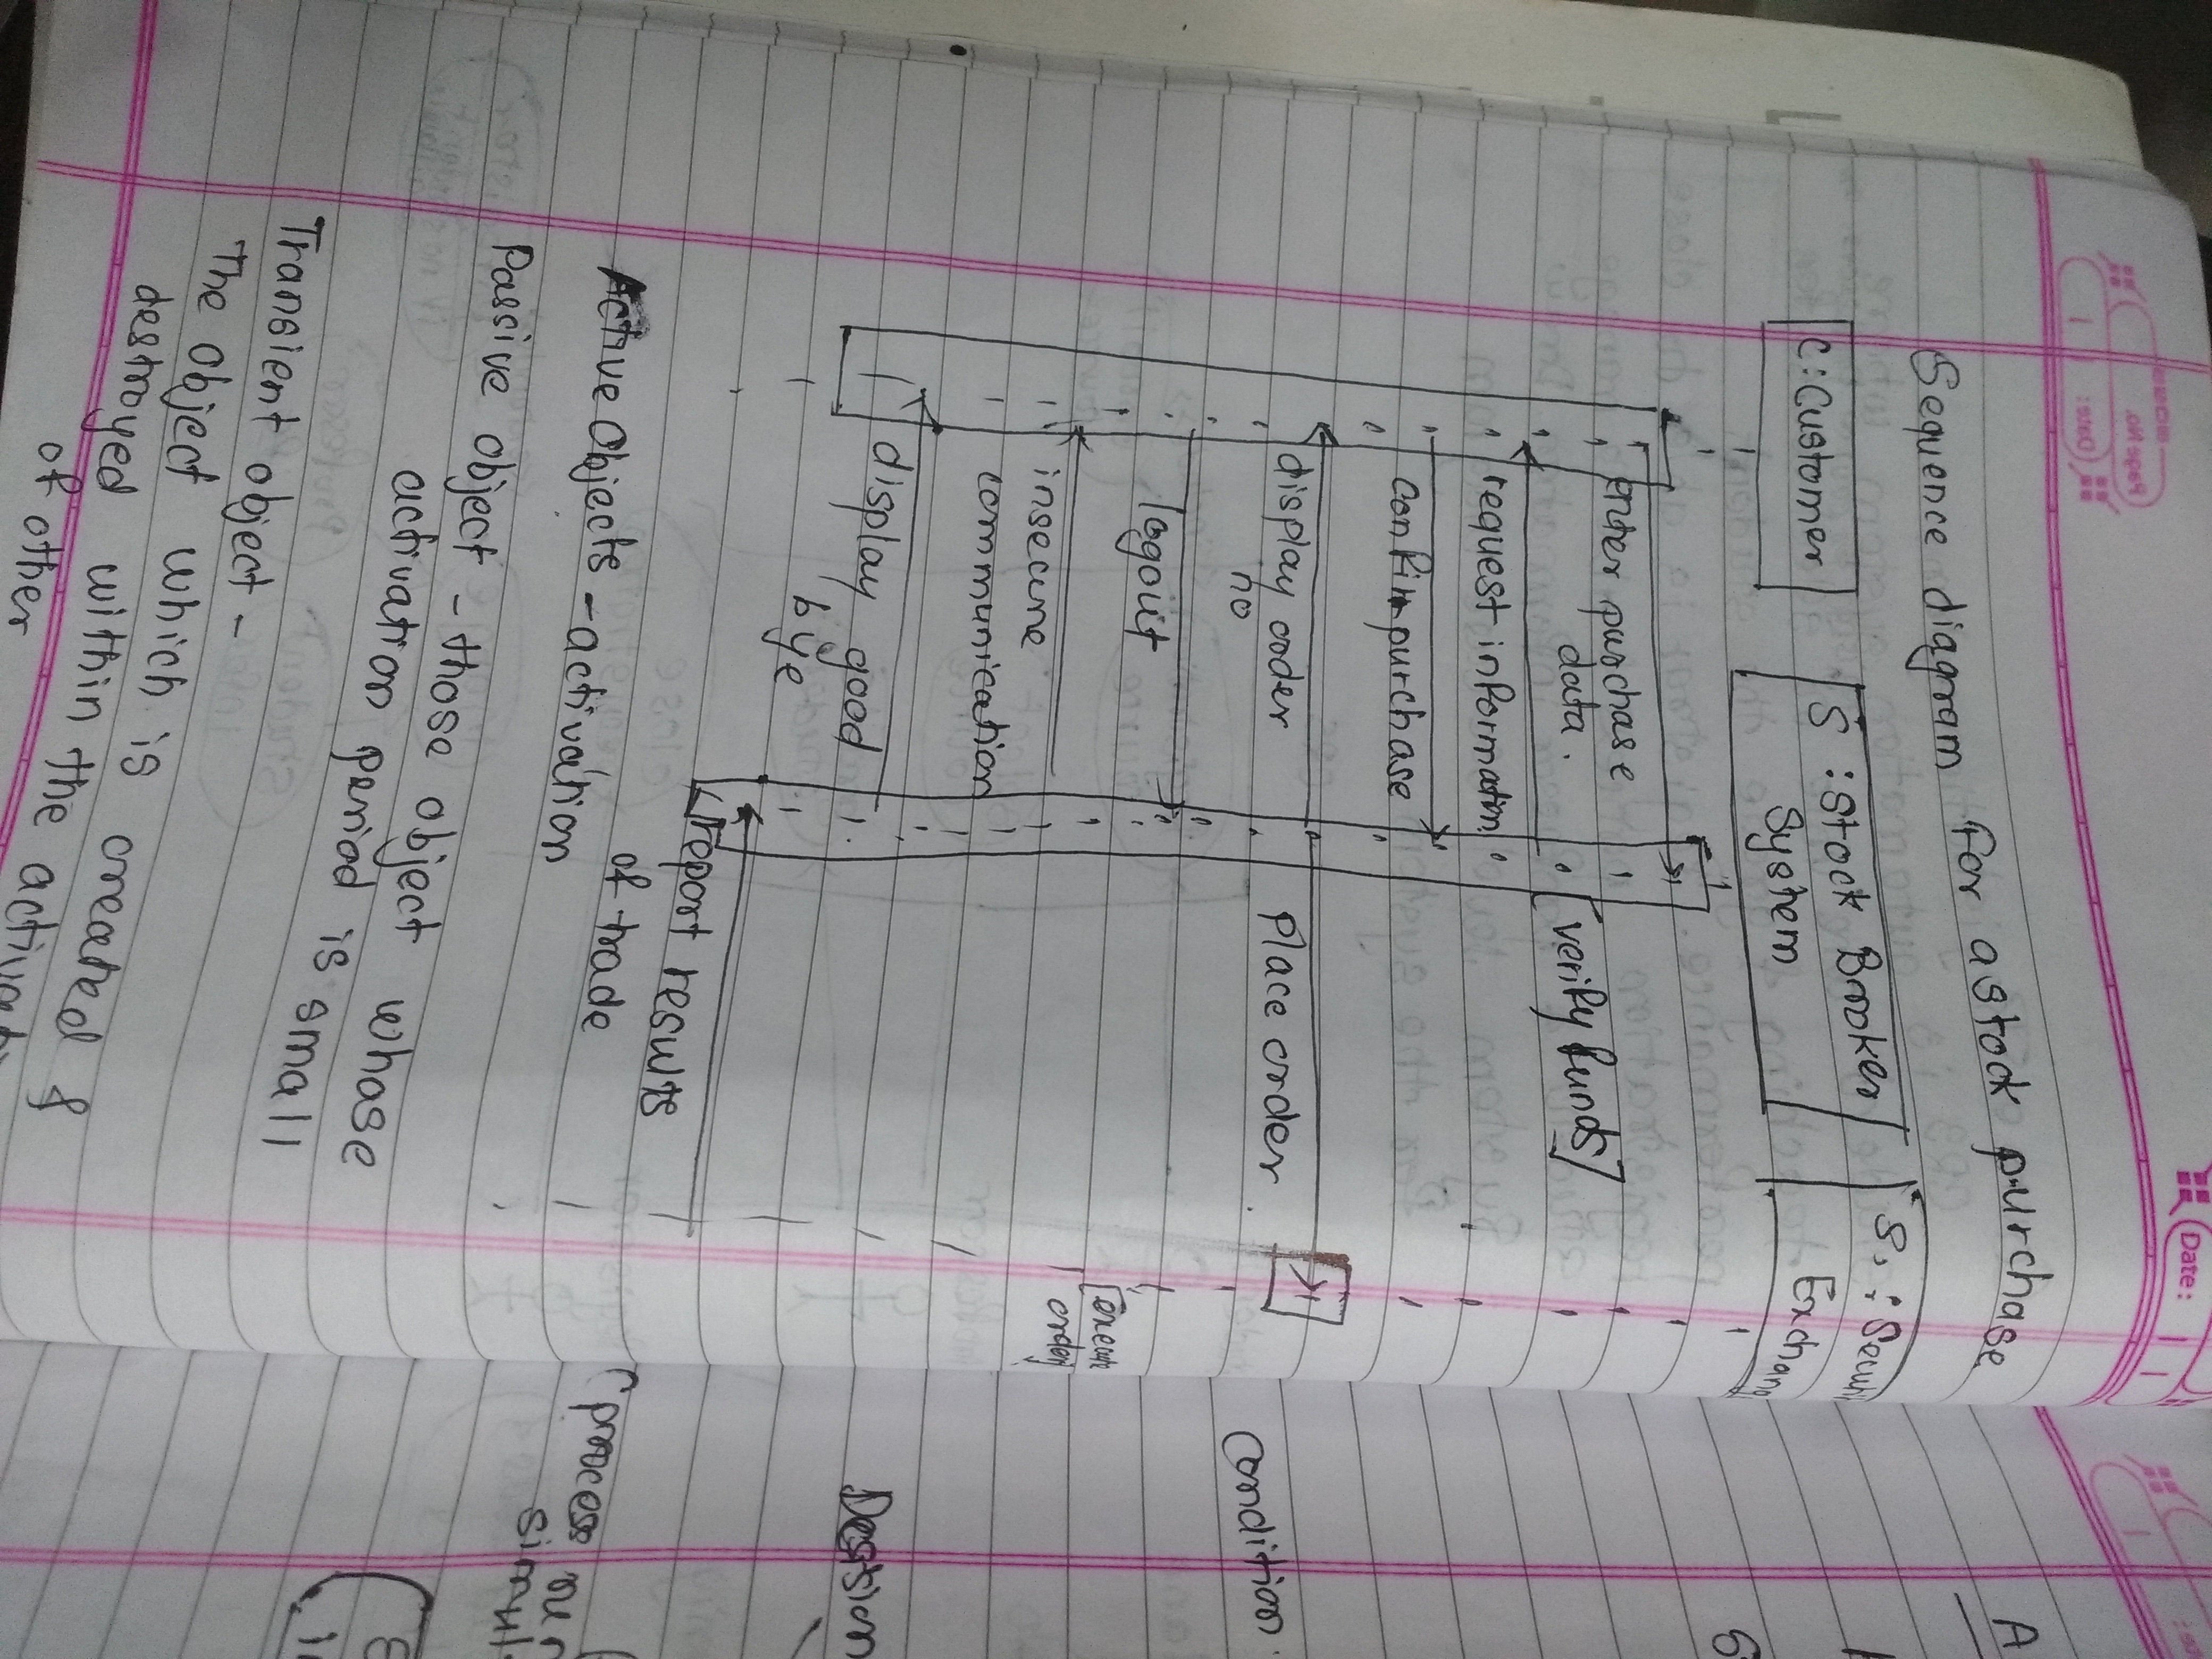 Date:
Page No.
Date:
Sequence diagram for a stock purchase
C:Customer
S :Stock Broker
System
S, : Securi
Exchang
enter purchase
data.
[verify funds]
request information
confirm purchase
display order
no
Place order
logout
[execute
order]
insecure
communication
display good
bye
report results
of trade
Active Objects - activation
Passive object - those object whose
activation period is small
Transient object -
The object which is created &
destroyed within the activati
of other
A
condition
Desision
(process run
simul